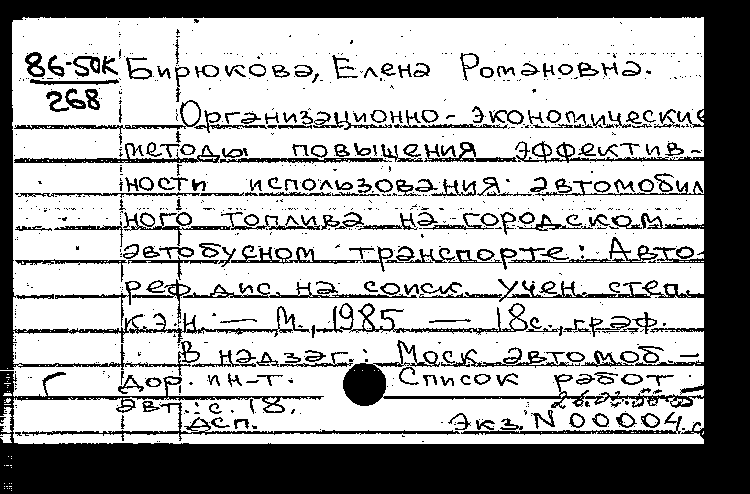 86-50К Бирюкова, Елена Романовна.
268
Организационно-экономические
методы повышения эффектив-
ности использования автомобил
ного топлива на городском
автобусном транспорте: Авто-
реф. дис. на соиск. учен. степ.
к.э.н. — М., 1985 — 18с., граф.
В надзаг.: Моск автомоб.-
дор. ин-т. Список работ
авт.: с. 18.
ДСП. Экз. N 00004